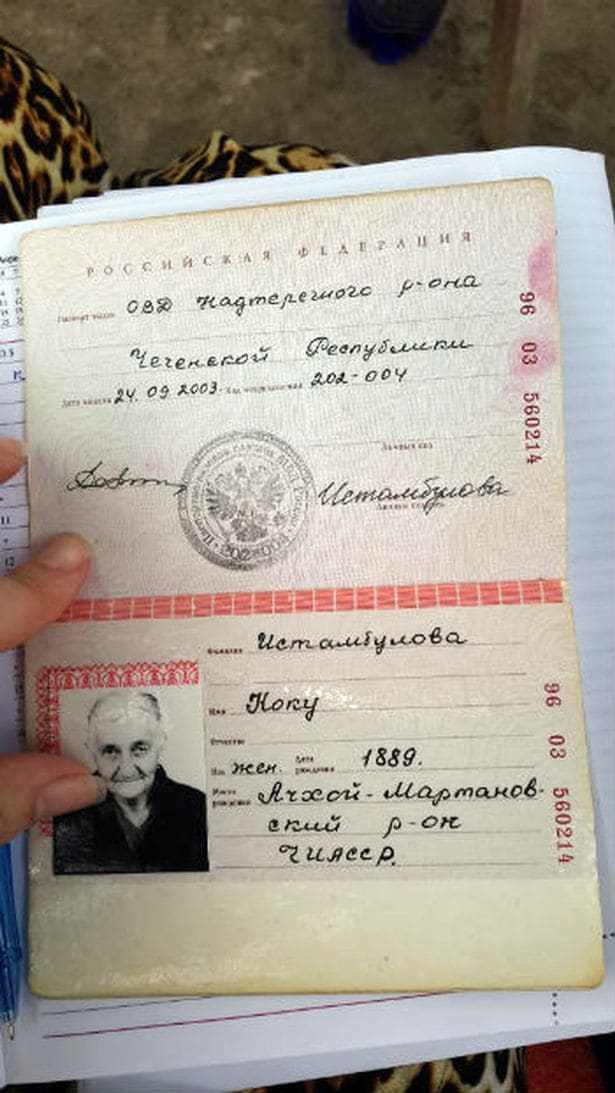 РОССИЙСКАЯ ФЕДЕРАЦИЯ
Паспорт выдан ОВД Надтеречного р-она
Чеченской Республики
Дата выдачи 24.09.2003. Код подразделения 202-004
96 03 560214
Личный код
Истамбулова
Личная подпись
Фамилия Истамбулова
Имя Коку
Отчество
Пол жен. Дата рождения 1889.
Место рождения Ачхой-Мартанов-
ский р-он
ЧИАССР.
96 03 560214